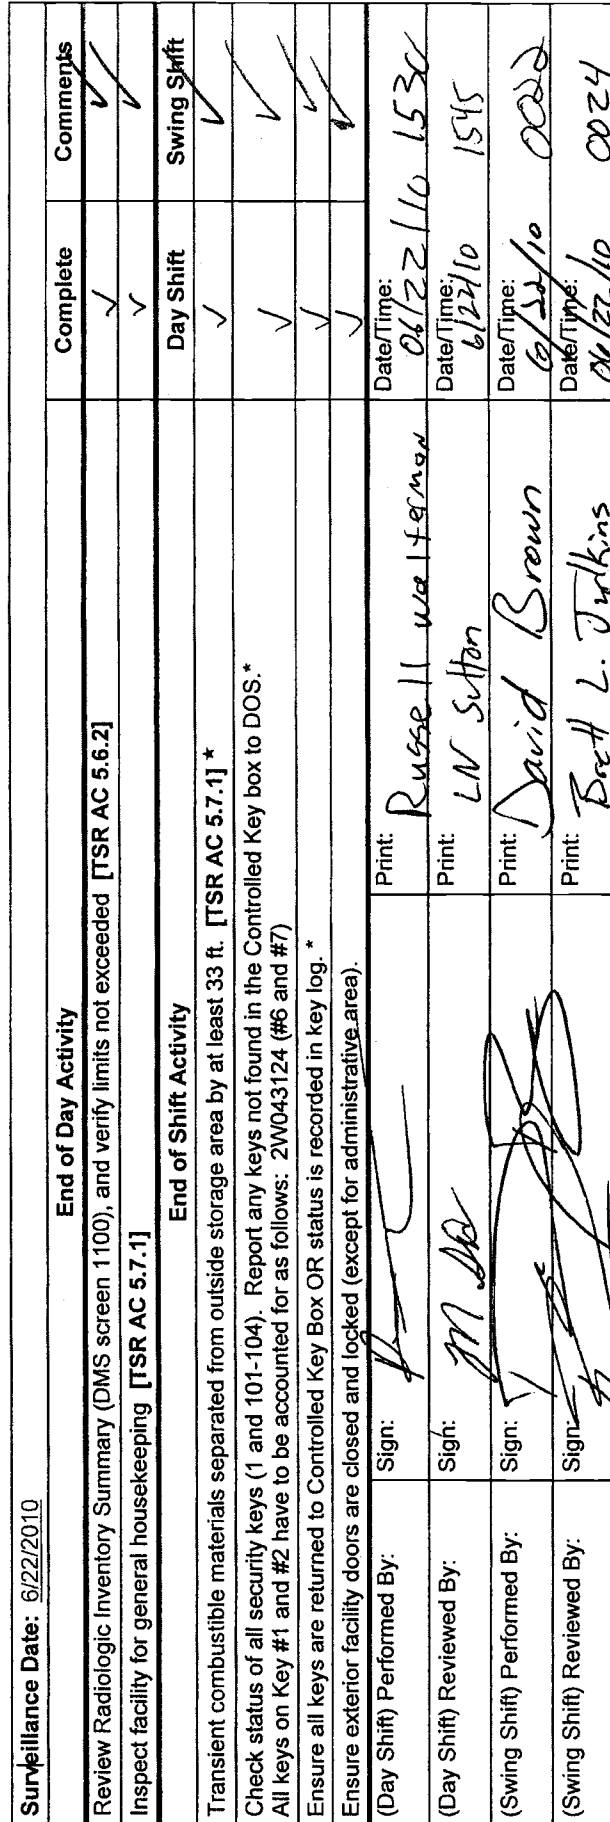 Surveillance Date: 6/22/2010
End of Day Activity Complete Comments
Review Radiologic Inventory Summary (DMS screen 1100), and verify limits not exceeded [TSR AC 5.6.2] ✓ ✓
Inspect facility for general housekeeping [TSR AC 5.7.1] ✓ ✓
End of Shift Activity Day Shift Swing Shift
Transient combustible materials separated from outside storage area by at least 33 ft. [TSR AC 5.7.1] * ✓ ✓
Check status of all security keys (1 and 101-104). Report any keys not found in the Controlled Key box to DOS.* ✓ ✓
All keys on Key #1 and #2 have to be accounted for as follows: 2W043124 (#6 and #7)
Ensure all keys are returned to Controlled Key Box OR status is recorded in key log. * ✓ ✓
Ensure exterior facility doors are closed and locked (except for administrative area). ✓ ✓
(Day Shift) Performed By: Sign: Print: Russell Walterman Date/Time: 06/22/10 1530
(Day Shift) Reviewed By: Sign: Print: LN Sutton Date/Time: 6/22/10 1545
(Swing Shift) Performed By: Sign: Print: David Brown Date/Time: 6/22/10 0022
(Swing Shift) Reviewed By: Sign: Print: Brett L. Date/Time: 06/22/10 0024